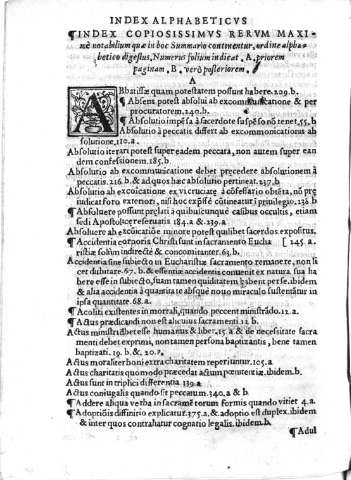 INDEX ALPHABETICVS
¶INDEX COPIOSISSIMVS RERVM MAXI-
mè notabilium quæ in hoc Summario continentur, ordine alpha-
betico digestus, Numerus folium indicat, A, priorem
paginam, B, verò posteriorem.
A
ABbatissæ quam potestatem possunt habere. 229. b.
¶ Absens potest absolui ab excommunicatione & per
procuratorem. 240. b.
¶ Absolutio impēsa à sacerdote suspēso nō tenet, 55, b
Absolutio à peccatis differt ab excommunicationis ab
solutione, 110. a.
Absolutio iterari potest super eadem peccata, non autem super ean
dem confessionem. 185. b
Absolutio ab excommunicatione debet præcedere absolutionem à
peccatis. 216. b. & ad quos hæc absolutio pertineat. 237. b
Absolutio ab excōicatione ex vi cruciatæ à cōfessario obtēta, nō præ
iudicat foro exteriori, nisi hoc exp̄sse cōtineatur ī priuilegio. 236 b
¶ Absoluere possunt prelati à quibuscunque casibus occultis, etiam
sedi Apostolicæ reseruatis 184. a & 239. a.
Absoluere ab excōicatiōe minore potest quilibet sacerdos expositus.
¶ Accidentia corporis Christi sunt in sacramento Eucha [ 245. a.
ristiæ solum indirectè & concomitanter. 65. b.
Accidentia sine subiecto in Eucharistiæ sacramento remanere, non li
cet dubitare. 67. b. & essentiæ accidentis conuenit ex natura sua ha
bere esse in subiecto, suam tamen quiditatem gabent per se. ibidem
& alia accidentia à quantitate absque nouo miraculo sustentātur in
ipsa quantitate. 68. a.
¶ Acoliti existentes in mortali, quando peccent ministrādo. 12. a.
¶ Actus prædicandi non est alicuius sacramenti 12. b.
Actus ministri debet esse humanus & liber, 15 a & de necessitate sacra
menti debet exprimi, non tamen persona baptizantis, bene tamen
baptizati. 19. b. &. 20. a,
Actus moraliter boni extra charitatem reperiuntur. 105. a
Actus charitatis quo modo præcedat actum pœnitentiæ. ibidem. b.
Actus sunt in triplici differentia 139. a
Actus coniugalis quando sit peccatum. 340, a & b.
¶ Addere aliqua verba in sacramētorum formis quando vitiet 4. a.
¶ Adoptiōis diffinitio explicatur. 375. a. & adoptio est duplex. ibidem
& inter quos contrahatur cognatio legalis. ibidem b.
¶ Adul